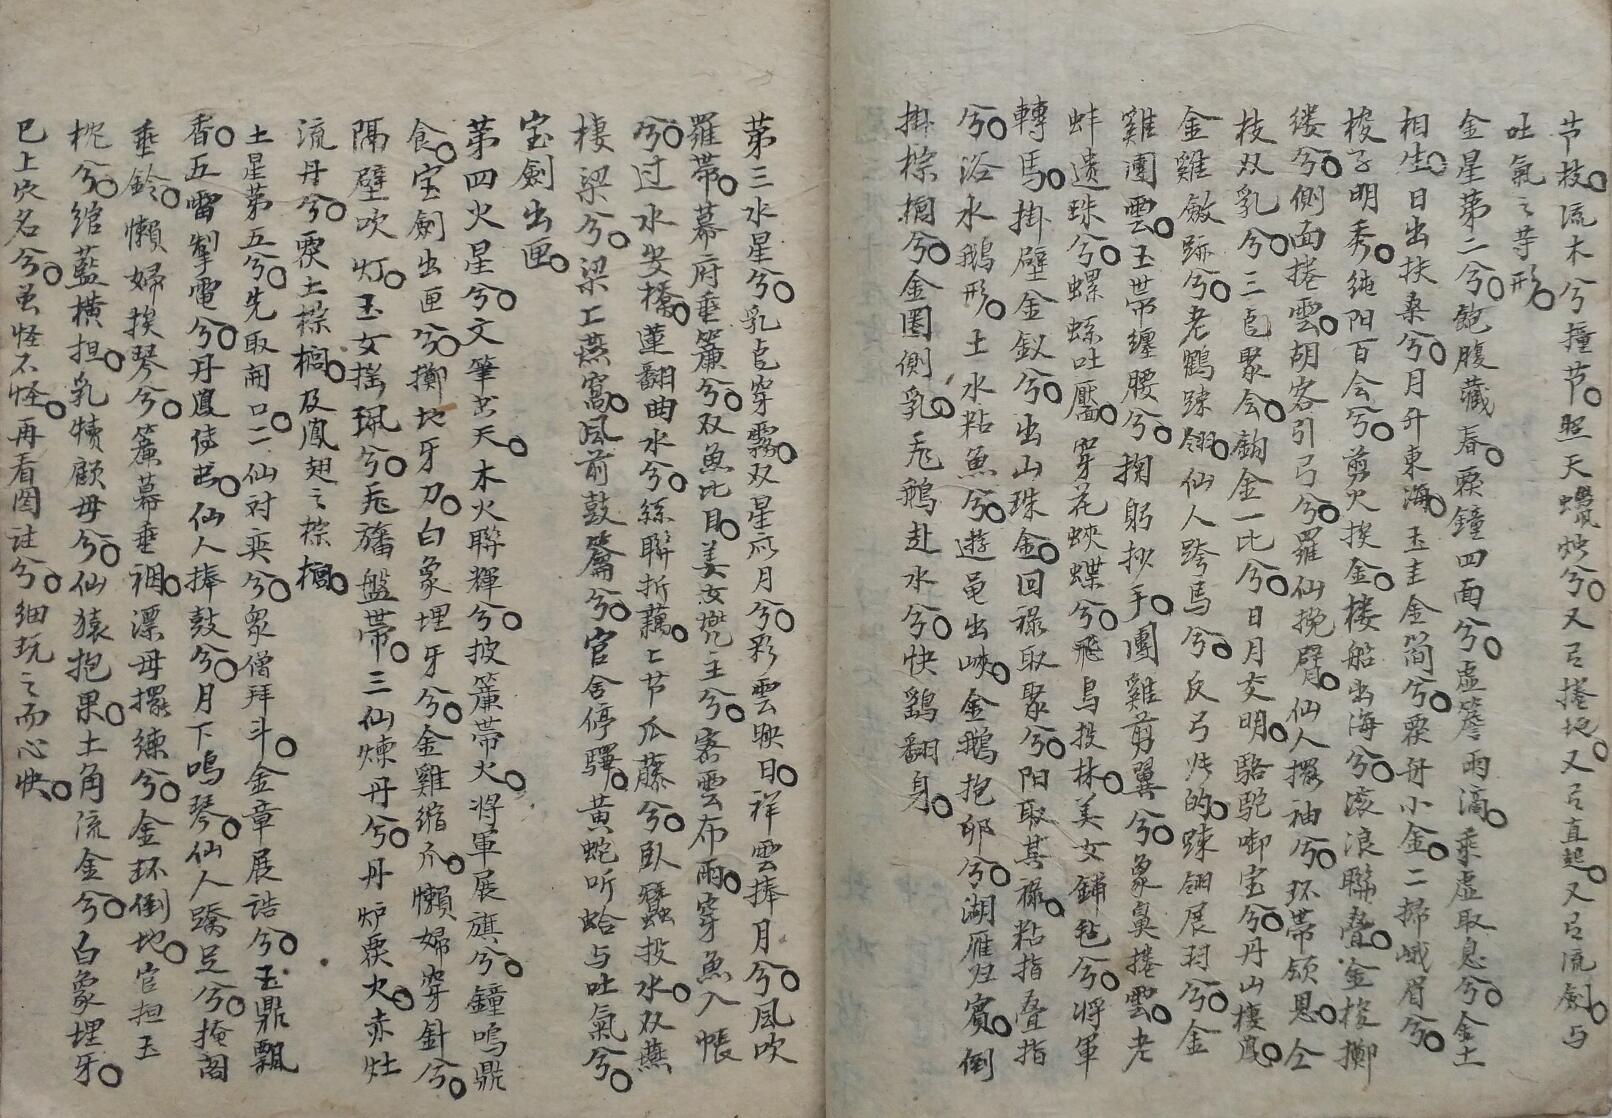 节枝。流木兮撞节。照天蠟烛兮。又曰捲地。又曰直起。又曰流劍。与
吐氣之芽形。
金星第二兮。飽腹藏春。覆鐘四面兮。虚簷雨滴。乘虚取息兮。金土
相生。日出扶桑兮。月升東海。玉圭金简兮。覆舟小金。二掃峨眉兮。
梭子明秀。纯阳百会兮。剪火挨金。楼船出海兮。滚浪聯叠。金梭擲
缕兮。側面捲雲。胡客引弓兮。羅仙挽臂。仙人擺袖兮。环带领恩。仝
枝双乳兮。三台聚会。鈎金一比兮。日月交明。駱駝啣宝兮。丹山棲鳳。
金雞斂跡兮。老鶴踈翎。仙人跨馬兮。反弓的。踈翎展羽兮。金
雞團雲。玉带纏腰兮。掬躬抄手。團雞剪翼兮。象鼻捲雲。老
蚌遗珠兮。螺蛳吐靨。穿花蛺蝶兮。飛鳥投林。美女鋪毡兮。将軍
轉馬。掛壁金釵兮。出山珠金。回禄取聚兮。阳取其禄。粘指叠指
兮。浴水鵝形。土水粘魚兮。遊黾出峡。金鵝抱卵兮。湖雁归賓。倒
掛棕搁兮。金圏側乳。兎鵝赴水兮。快鷂翻身。
第三水星兮。乳台穿霧。双星应月兮。彩雲映日。祥雲捧月兮。風吹
羅带。幕府垂簾兮。双魚比目。美女兠主兮。密雲布雨。穿魚入帳
兮。过水安橋。蓮翻曲水兮。絲聯折藕。二节瓜藤兮。臥蠶投水。双燕
棲梁兮。梁工燕窩。風前鼓籥兮。官舍停驛。黄蛇听蛤与吐氣兮。
宝劍出匣。
第四火星兮。文筆出天。木火聯輝兮。披簾带火。将軍展旗兮。鐘鳴鼎
食。宝劍出匣兮。擲地牙刀。白象埋牙兮。金雞缩爪。懶婦穿針兮。
隔壁吹灯。玉女摇珮兮。兎旛盤带。三仙煉丹兮。丹炉覆火。赤灶
流丹兮。覆土棕槅。及鳳翅之棕槅。
土星第五兮。先取開口。二仙对奕兮。眾僧拜斗。金章展诰兮。玉鼎飄
香。五雷掣電兮。丹鳳信書。仙人捧鼓兮。月下鳴琴。仙人蹻足兮。掩阁
垂鈴。懒婦挨琴兮。簾幕垂裀。漂母擺練兮。金环倒地。官担玉
枕兮。绾藍横担。乳犢顧母兮。仙猿抱果。土角流金兮。白象埋牙。
已上穴名兮。虽怪不怪。再看图註兮。细玩之而心快。